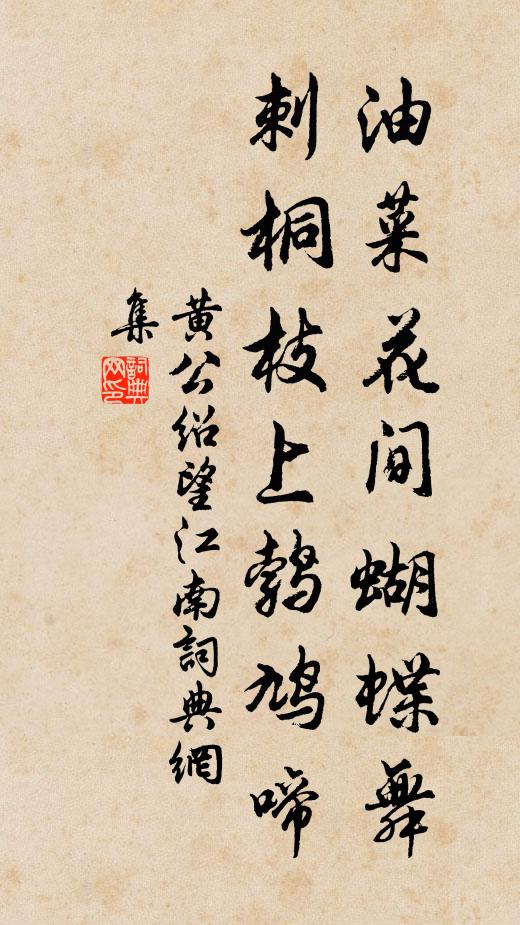 油菜花間蝴蝶舞
刺桐枝上鹁鳩啼
黄公绍望江南詞典網
集
詞典
网印